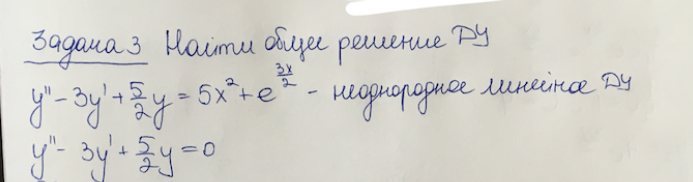 Задача 3 Найти общее решение ДУ
y'' - 3y' + 5/2 y = 5x² + e^(3x/2) - неоднородное линейное ДУ
y'' - 3y' + 5/2 y = 0